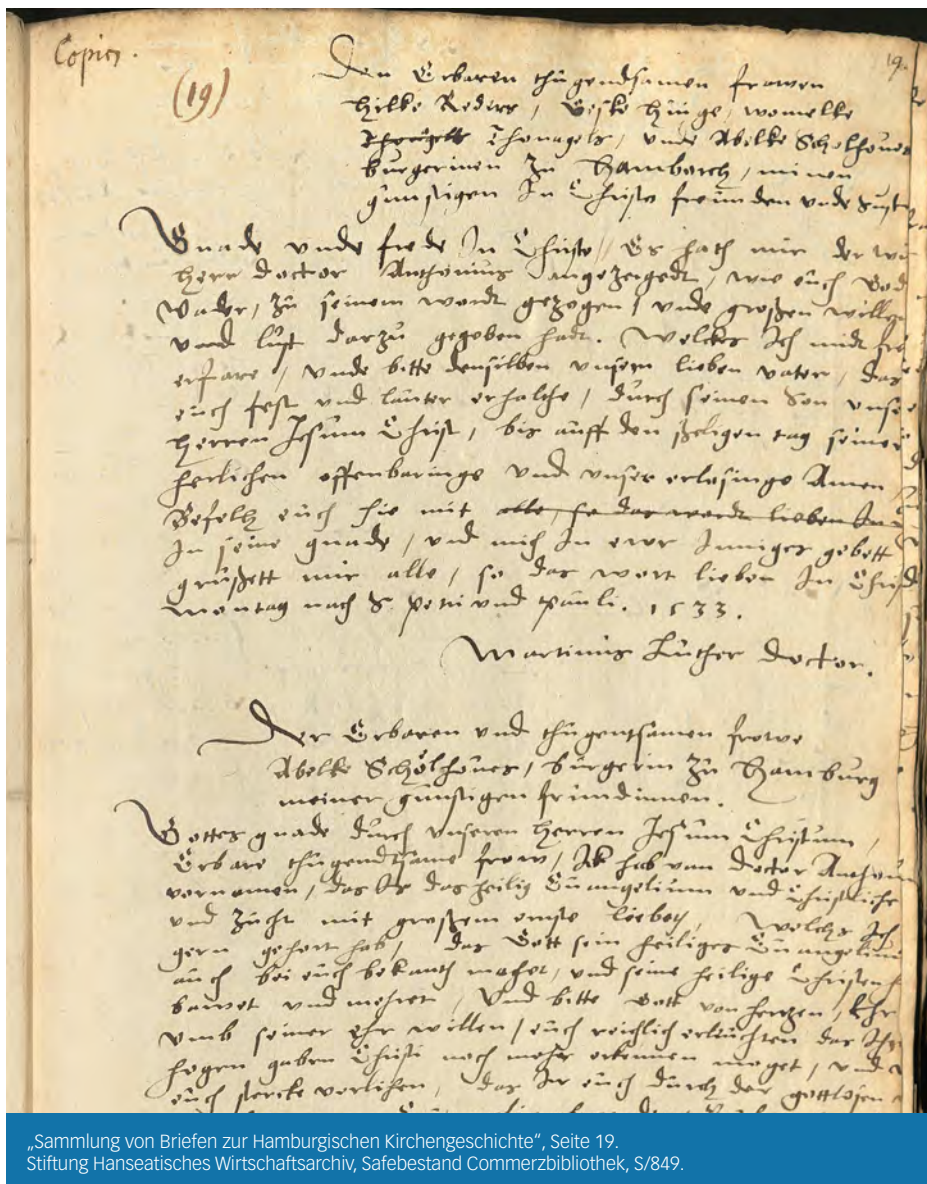 Copien.
19.
(19)
Den Erbaren thugendtsamen frowen
Hilke Reders, Geske Huige, womelke
Thonagels, unde Abelke Scholhoue
burgerinen zu Hamborch, minen
gunstigen In Christo freunden unde
Gnade unde frede In Christo // Es hath mir der
Herr doctor Anthonius angezeigedt, wie euch God
Vader, zu seinem wordt gezogen, unde großen willen
vnnd lust darzu gegeben hadt. Welckes Ich midt
erfare, unde bitte denselben unsern lieben vater, das
euch fest und lauter erhalthe, durch seinen Son unse
Herren Jesum Christ, bis auff den seligen tag seiner
herlichen offenbaringe und unser erlosinge Amen
Befelh euch hie mit alle, so das wordt lieben In
In seine gnade, und mich In ewr Inniges gebett
grußett mir alle, so das wort lieben In Christ
Montag nach S. petri und pauli. 1533.
Martinus Luther doctor.
Der Erbaren und thugentsamen frowe
Abelke Schölhoues, burgerin zu Hamburg
meiner gunstigen frundinnen.
Gottes gnade durch unseren Herren Jesum Christum,
Erbare thugendtsame frow, Ick hab van doctor Anthoni
vornomen, das Ir das heilig Euangelium und Christliche
und zucht mit großem ernste liebet, Welchs Ich
gern gehort hab, das Gott sein heiliges Euangelium
auch bei euch bekanth machet, und seine heilige Christen
bawet und mehret, Und bitte Gott von hertzen, Ehr
umb seiner Ehr willen, euch reichlich erluchten das
hogen gaben Christi noch mehr erkennen moget, und
euch stercke vorlihen, das Ir euch durch der gottlosen
„Sammlung von Briefen zur Hamburgischen Kirchengeschichte“, Seite 19.
Stiftung Hanseatisches Wirtschaftsarchiv, Safebestand Commerzbibliothek, S/849.